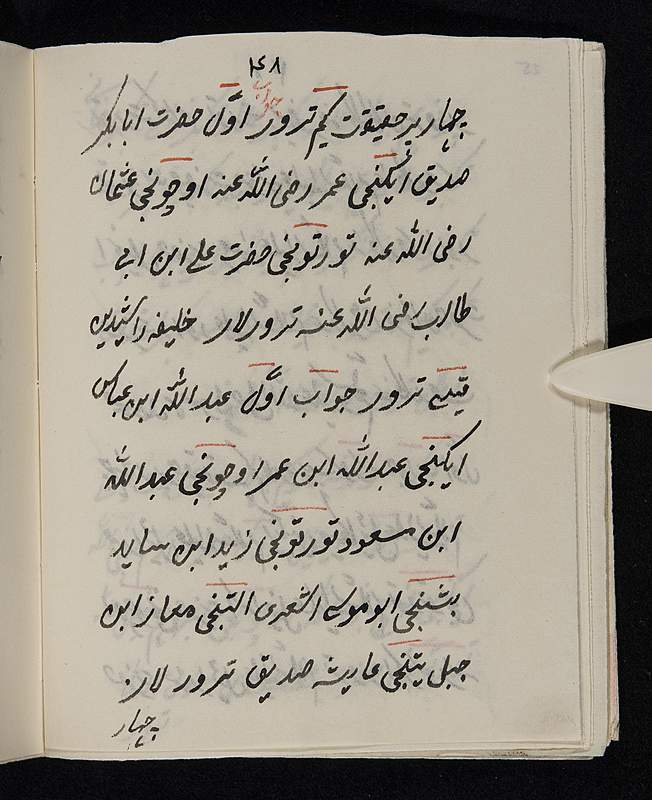 ۴۸
چهار پیر حقیقت کیم ترور جواب اوّل حضرت ابابکر
صدیق ایکنجی عمر رضی اللّه عنه اوچونجی عثمان
رضی اللّه عنه تورتونجی حضرت علے ابن ابی
طالب رضی اللّه عنه ترورلار خلیفه راشیدین
قیسے ترور جواب اوّل عبد اللّه ابن عباس
ایکنجی عبداللّه ابن عمر اوچونجی عبداللّه
ابن مسعود تورتونجی زید ابن ساید
بشنجی ابو موسے الشعری التنجی معاز ابن
جبل یتنجی عایشه صدیق ترور لار.
چهار